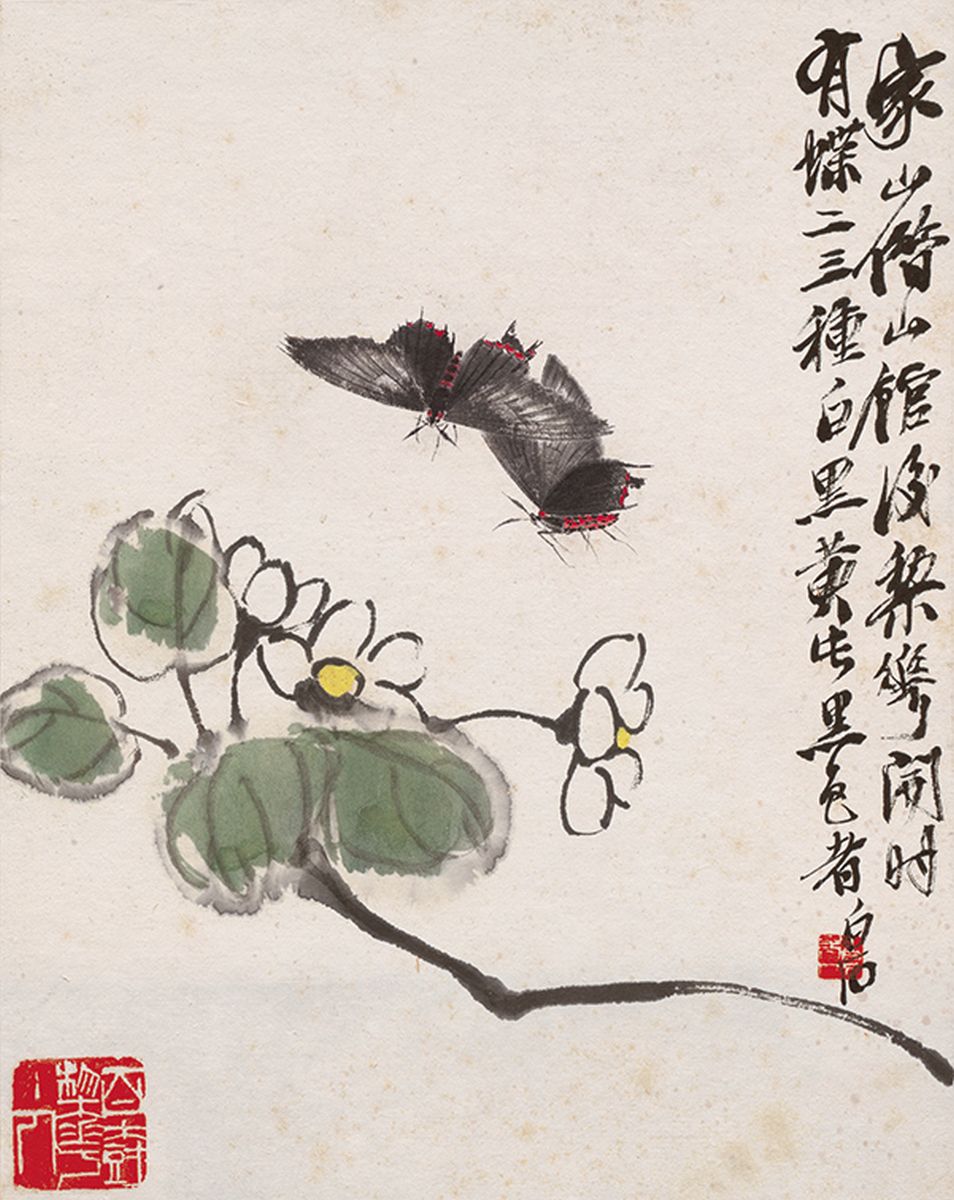 家山借山館後梨華開時
有蝶二三種白黑黃此黑色者
白石